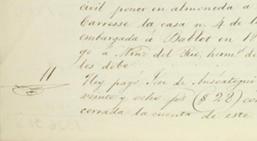 civil poner en almoneda a
Carresse la casa n. 4 de l
embargada á Ballot en 18
go a Nino del Rio, herm.º de
les debo
11
Hoy pagé Jose de Anscategui
veinte y ocho ps ($28) con
cerrada la cuenta de este